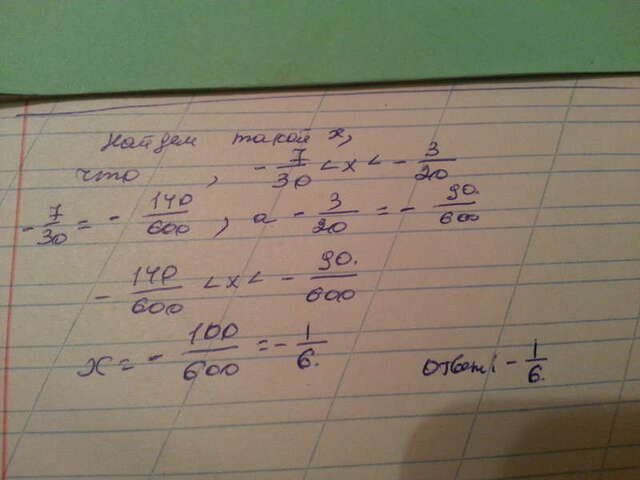 Найдем такой x,
что , - 7/30 < x < - 3/20
- 7/30 = - 140/600 , а - 3/20 = - 90/600
- 140/600 < x < - 90/600
x = - 100/600 = - 1/6.
ответ: - 1/6.